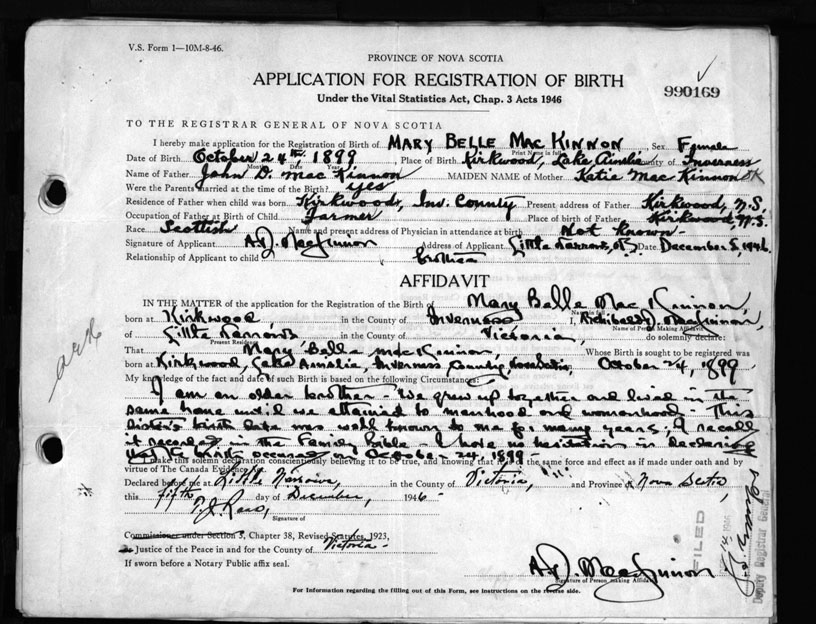 V.S. Form 1—10M-8-46.
PROVINCE OF NOVA SCOTIA
APPLICATION FOR REGISTRATION OF BIRTH
Under the Vital Statistics Act, Chap. 3 Acts 1946
990169
TO THE REGISTRAR GENERAL OF NOVA SCOTIA
I hereby make application for the Registration of Birth of MARY BELLE MAC KINNON, Sex Female
Print Name in full
Date of Birth October 24th, 1899, Place of Birth Kirkwood, Lake Ainslie County of Inverness
Month Date Year
Name of Father John D. Mac Kinnon MAIDEN NAME of Mother Katie Mac Kinnon
Were the Parents married at the time of the Birth? yes
Residence of Father when child was born Kirkwood, Inv. County Present address of Father Kirkwood, N.S.
Occupation of Father at Birth of Child Farmer Place of birth of Father Kirkwood, N.S.
Race Scottish Name and present address of Physician in attendance at birth Not known -
Signature of Applicant A.D. MacKinnon Address of Applicant Little Narrows, N.S. Date December 5, 1946.
Relationship of Applicant to child brother
AFFIDAVIT
IN THE MATTER of the application for the Registration of the Birth of Mary Belle Mac Kinnon,
Name in full
born at Kirkwood in the County of Inverness I, Archibald D. MacKinnon,
Name of Person Making Affidavit
of Little Narrows, in the County of Victoria, do solemnly declare:
Present Residence
That Mary Belle MacKinnon, Whose Birth is sought to be registered was
born at Kirkwood, Lake Ainslie, Inverness County, October 24, 1899
My knowledge of the fact and date of such Birth is based on the following Circumstances:
I am an older brother - We grew up together and lived in the
same home until we attained to manhood and womanhood - This
sister's birth date was well known to me for many years; I recall
it recorded in the Family Bible - I have no hesitation in declaring
that the birth occured on October 24, 1899 -
make this solemn declaration conscientiously believing it to be true, and knowing that it is of the same force and effect as if made under oath and by
virtue of The Canada Evidence
Declared before me at Little Narrows, in the County of Victoria, and Province of Nova Scotia,
this fifth day of December, 1946 -
Signature of
Commissioner under Section 3, Chapter 38, Revised Statutes, 1923,
Justice of the Peace in and for the County of Victoria -
If sworn before a Notary Public affix seal.
A.D. MacKinnon
Signature of Person making Affidavit
For Information regarding the filling out of this Form, see instructions on the reverse side.
FILED
Deputy Registrar General